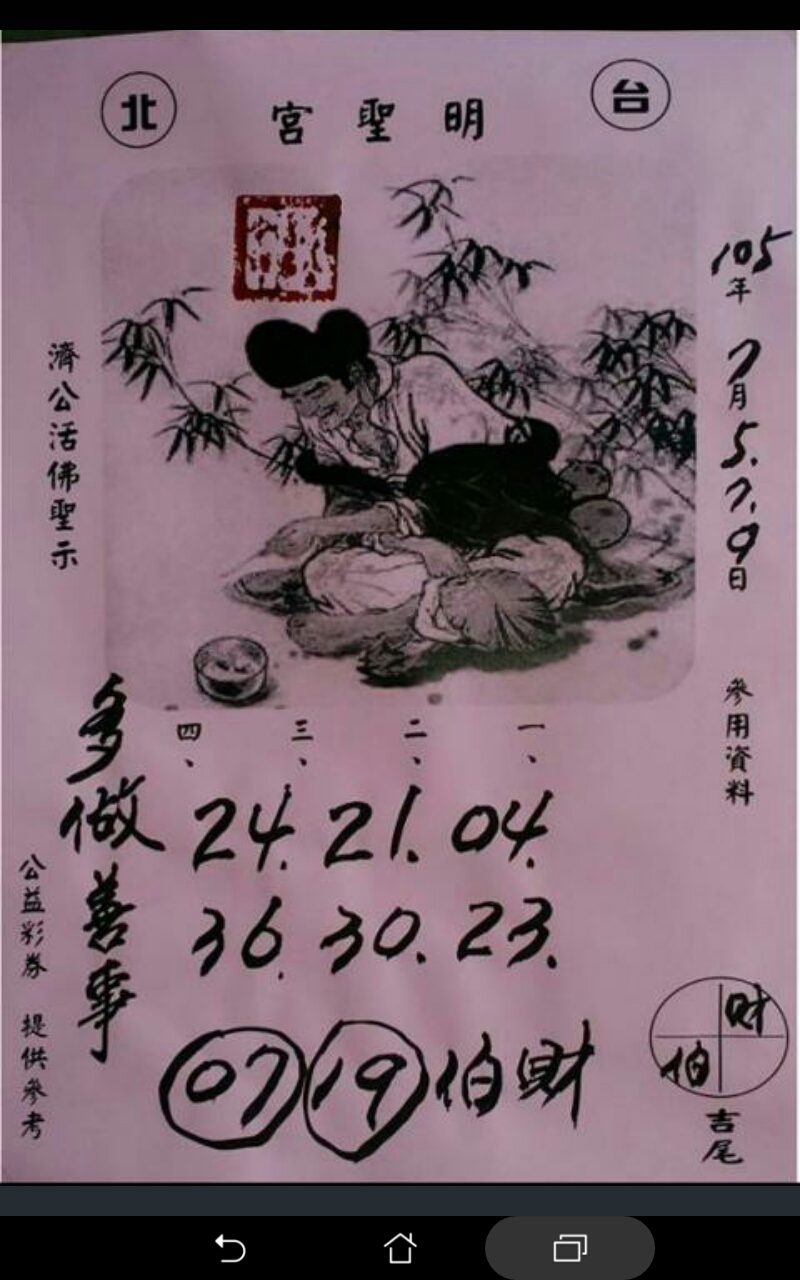 台北
明聖宮
105年7月5.7.9日
參用資料
一、二、三、四、
04. 21. 24.
23. 30. 36.
財伯 19 07
財
伯
吉尾
濟公活佛聖示
多做善事
公益彩券 提供參考